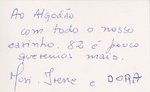 Ao Algodão
com todo o nosso
carinho. 82 é pouco
queremos mais.
Mori. Irene e DORA